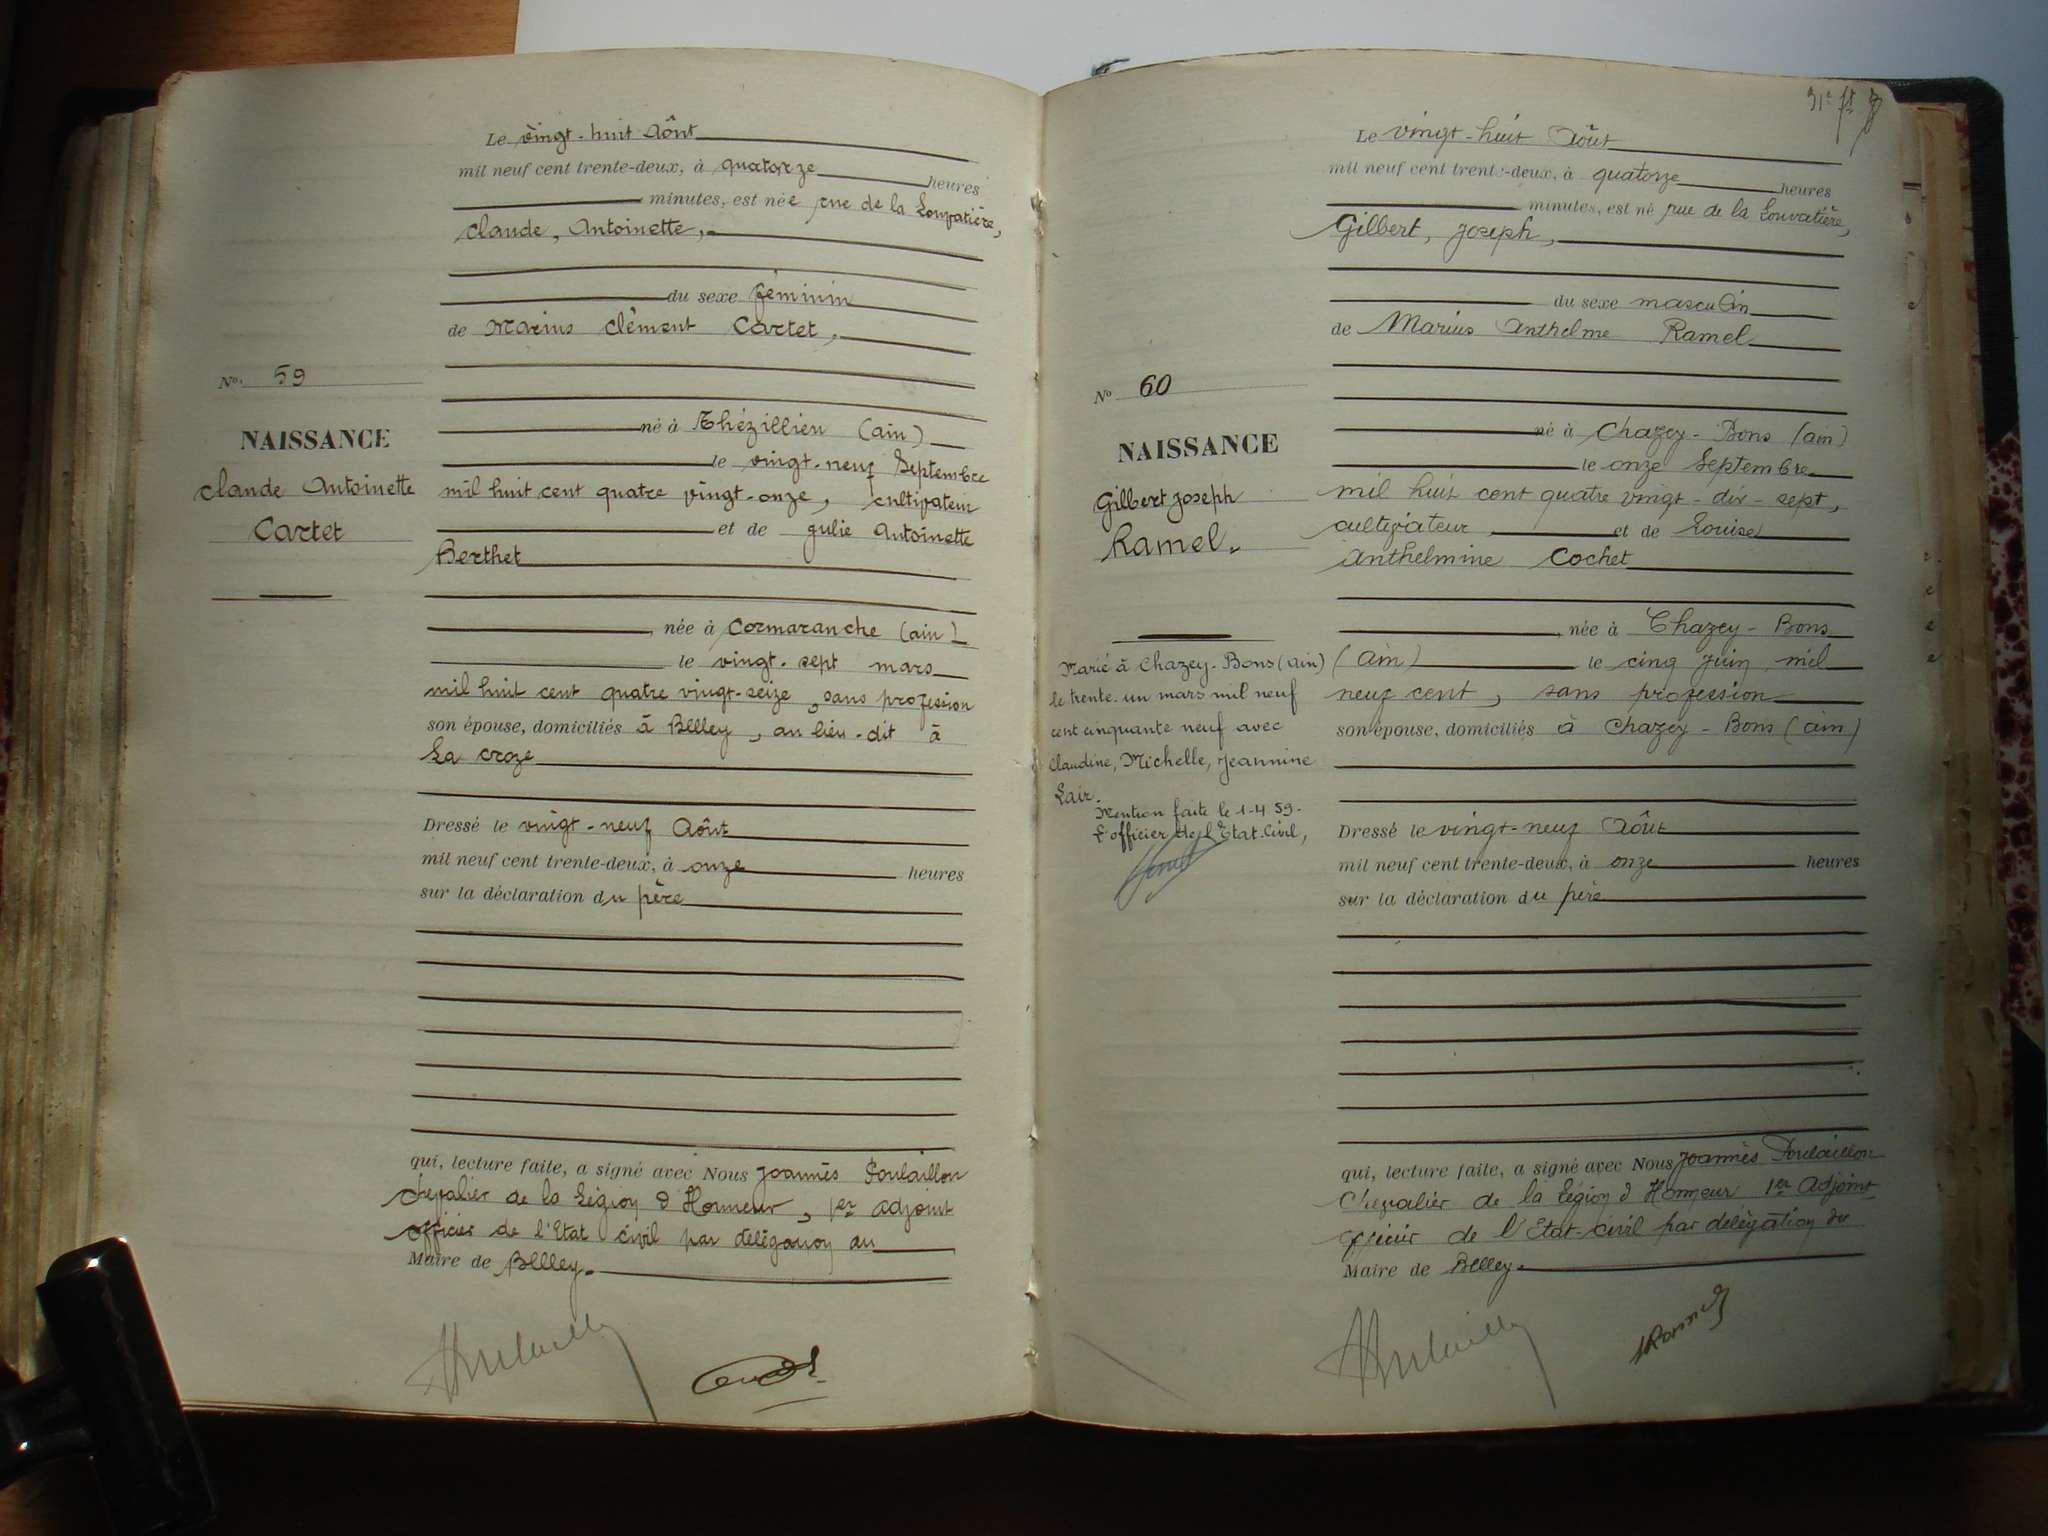 Le vingt-huit Août
mil neuf cent trente-deux, à quatorze heures
minutes, est née rue de la Louvatière,
Claude, Antoinette,
du sexe féminin
de Marius Clément Cartet,
né à Thézillieu (ain)
le vingt-neuf Septembre
mil huit cent quatre vingt-onze, cultivateur
et de Julie Antoinette
Berthet
née à Cormaranche (ain)
le vingt-sept mars
mil huit cent quatre vingt-seize, sans profession
son épouse, domiciliés à Belley, au lieu-dit à
La croze
Dressé le vingt-neuf Août
mil neuf cent trente-deux, à onze heures
sur la déclaration du père
qui, lecture faite, a signé avec Nous Joannès Poulaillon
Chevalier de la Légion d'Honneur, 1er adjoint
officier de l'Etat civil par délégation du
Maire de Belley.
No. 59
NAISSANCE
Claude Antoinette
Cartet
31e ft
Le vingt-huit Août
mil neuf cent trente-deux, à quatorze heures
minutes, est né rue de la Louvatière,
Gilbert, Joseph,
du sexe masculin
de Marius Anthelme Ramel
né à Chazey-Bons (ain)
le onze Septembre
mil huit cent quatre vingt-dix-sept,
cultivateur et de Louise
Anthelmine Cochet
née à Chazey-Bons
(ain) le cinq Juin mil
neuf cent, sans profession
son épouse, domiciliés à Chazey-Bons (ain)
Dressé le vingt-neuf Août
mil neuf cent trente-deux, à onze heures
sur la déclaration du père
qui, lecture faite, a signé avec Nous Joannès Poulaillon
Chevalier de la Légion d'Honneur 1er Adjoint
officier de l'Etat-civil par délégation du
Maire de Belley.
Ramel
No 60
NAISSANCE
Gilbert Joseph
Ramel.
Marié à Chazey-Bons (ain)
le trente-un mars mil neuf
cent cinquante neuf avec
Claudine, Michelle, Jeannine
Lair.
Mention faite le 1-4 59-
L'officier de l'Etat-Civil,